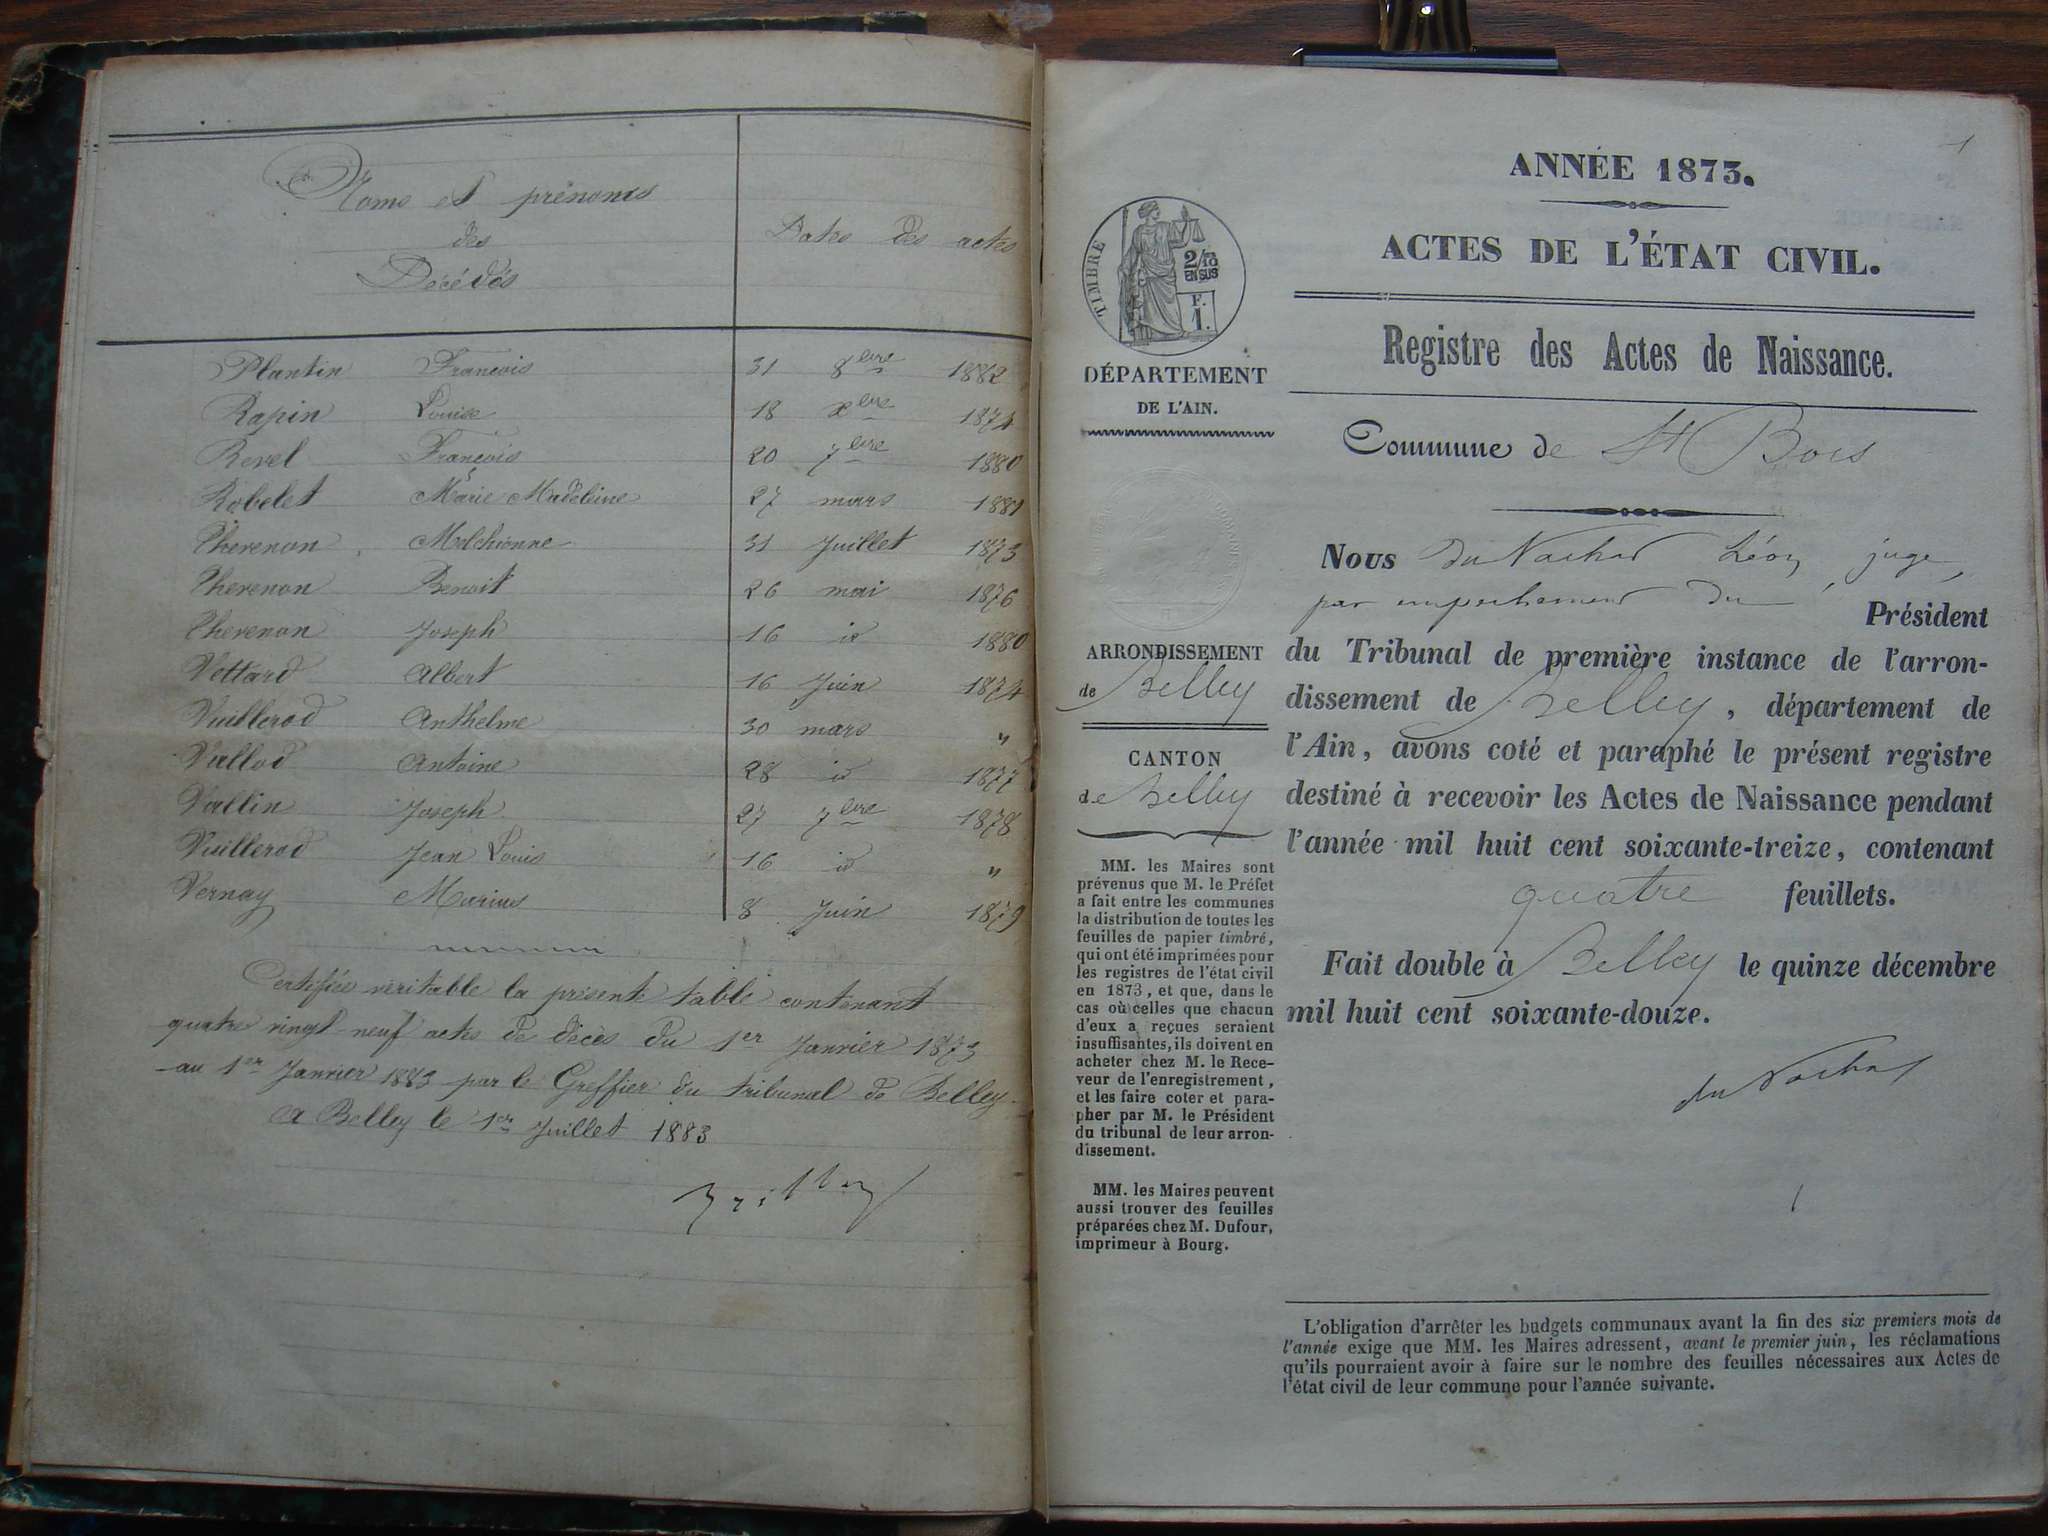 Noms et prénoms
des
Décédés
Dates des actes
Plantin François 31 8bre 1882
Rapin Louise 18 xbre 1874
Revel François 20 7bre 1880
Robelet Marie Madeleine 27 mars 1881
Thevenon Melchionne 31 Juillet 1873
Thevenon Benoit 26 mai 1876
Thevenon Joseph 16 id 1880
Vettard Albert 16 Juin 1874
Vuillerod Anthelme 30 mars "
Vallod Antoine 28 id 1877
Vallin Joseph 27 7bre 1878
Vuillerod Jean Louis 16 id "
Vernay Marius 8 Juin 1879
Certifiée véritable la présente table contenant
quatre vingt-neuf actes de décès du 1er Janvier 1873
au 1er Janvier 1883 par le Greffier du tribunal de Belley
A Belley le 1er Juillet 1883
1
ANNÉE 1873.
ACTES DE L'ÉTAT CIVIL.
Registre des Actes de Naissance.
Commune de St Bois
TIMBRE
2/10
EN SUS
F.
1.
DÉPARTEMENT
DE L'AIN.
ARRONDISSEMENT
de Belley
CANTON
de Belley
MM. les Maires sont
prévenus que M. le Préfet
a fait entre les communes
la distribution de toutes les
feuilles de papier timbré,
qui ont été imprimées pour
les registres de l'état civil
en 1873, et que, dans le
cas où celles que chacun
d'eux a reçues seraient
insuffisantes, ils doivent en
acheter chez M. le Rece-
veur de l'enregistrement,
et les faire coter et para-
pher par M. le Président
du tribunal de leur arron-
dissement.
MM. les Maires peuvent
aussi trouver des feuilles
préparées chez M. Dufour,
imprimeur à Bourg.
Nous du Nachat Léon, juge,
par empêchement du Président
du Tribunal de première instance de l'arron-
dissement de Belley, département de
l'Ain, avons coté et paraphé le présent registre
destiné à recevoir les Actes de Naissance pendant
l'année mil huit cent soixante-treize, contenant
quatre feuillets.
Fait double à Belley le quinze décembre
mil huit cent soixante-douze.
du Nachat
L'obligation d'arrêter les budgets communaux avant la fin des six premiers mois de
l'année exige que MM. les Maires adressent, avant le premier juin, les réclamations
qu'ils pourraient avoir à faire sur le nombre des feuilles nécessaires aux Actes de
l'état civil de leur commune pour l'année suivante.